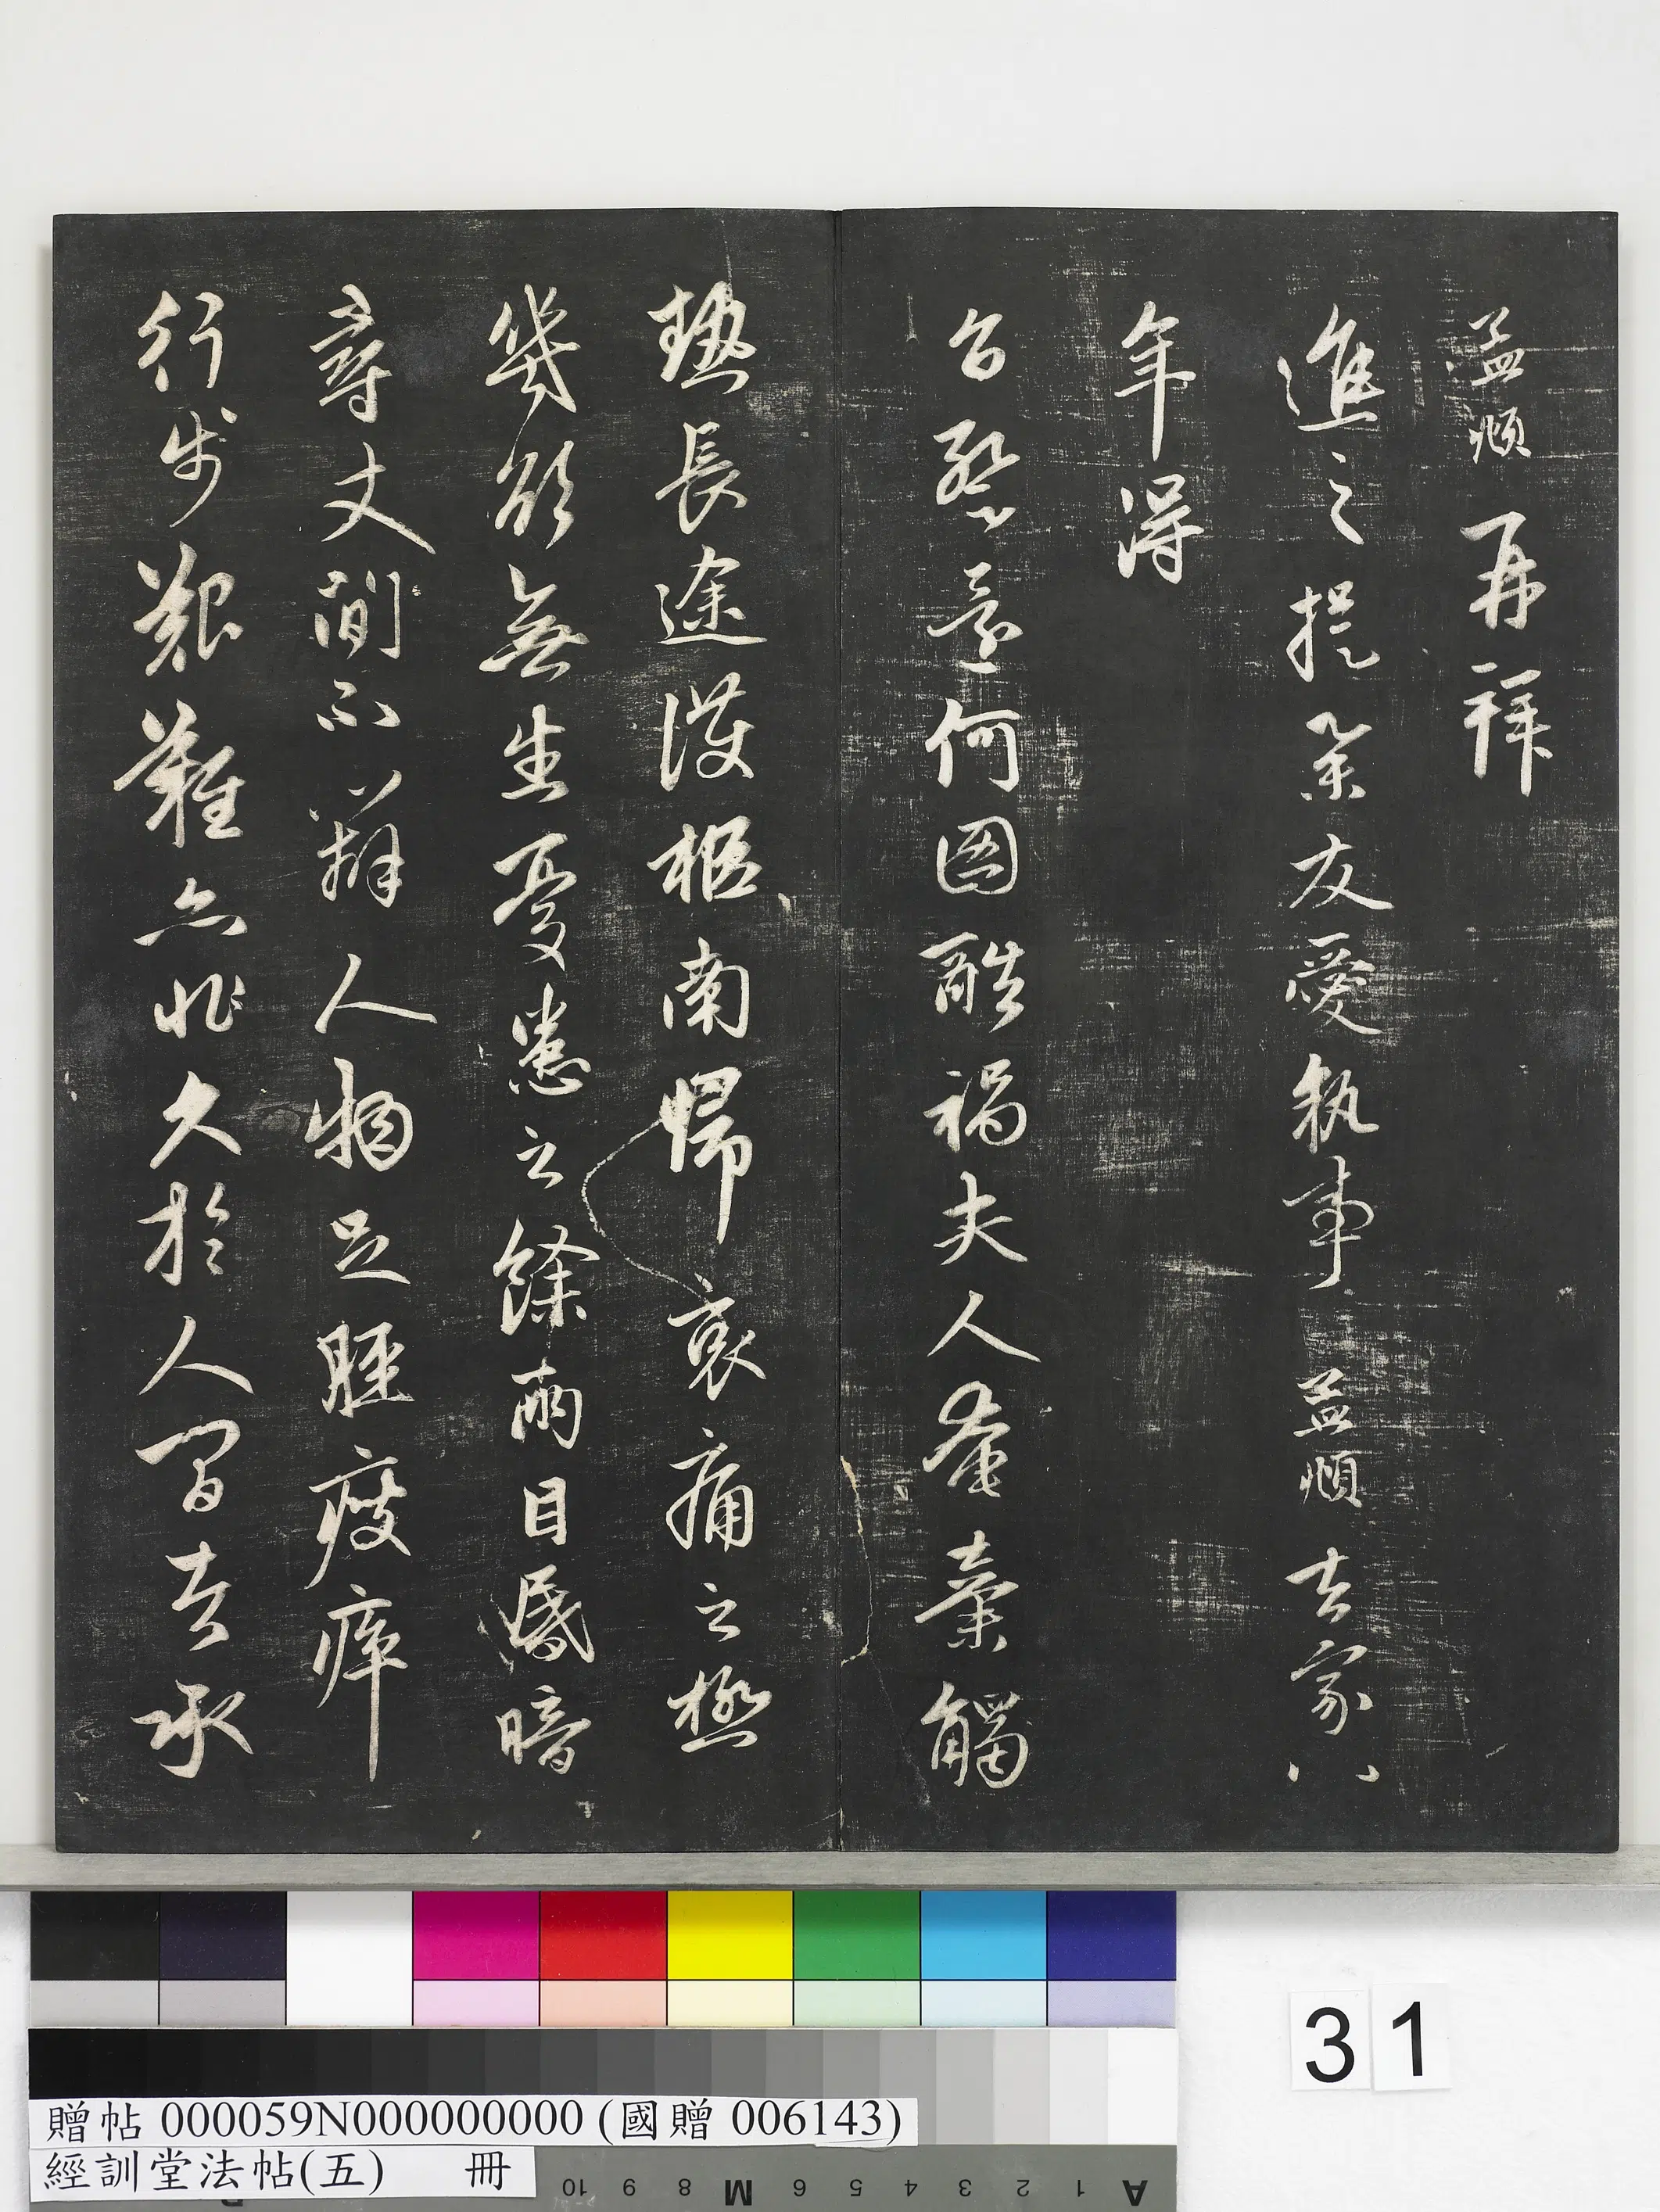 孟頫再拜
進之提舉友愛執事孟頫去家八
年得
旨暫還何圖酷禍夫人奄棄觸
熱長途護柩南歸哀痛之極
幾欲無生憂患之餘兩目昏暗
尋丈間不辨人物足脛瘦瘁
行步艱難亦非久於人間者承
31
贈帖 000059N000000000 (國贈 006143)
經訓堂法帖(五) 冊
10 9 8 M 6 5 4 3 2 1 A